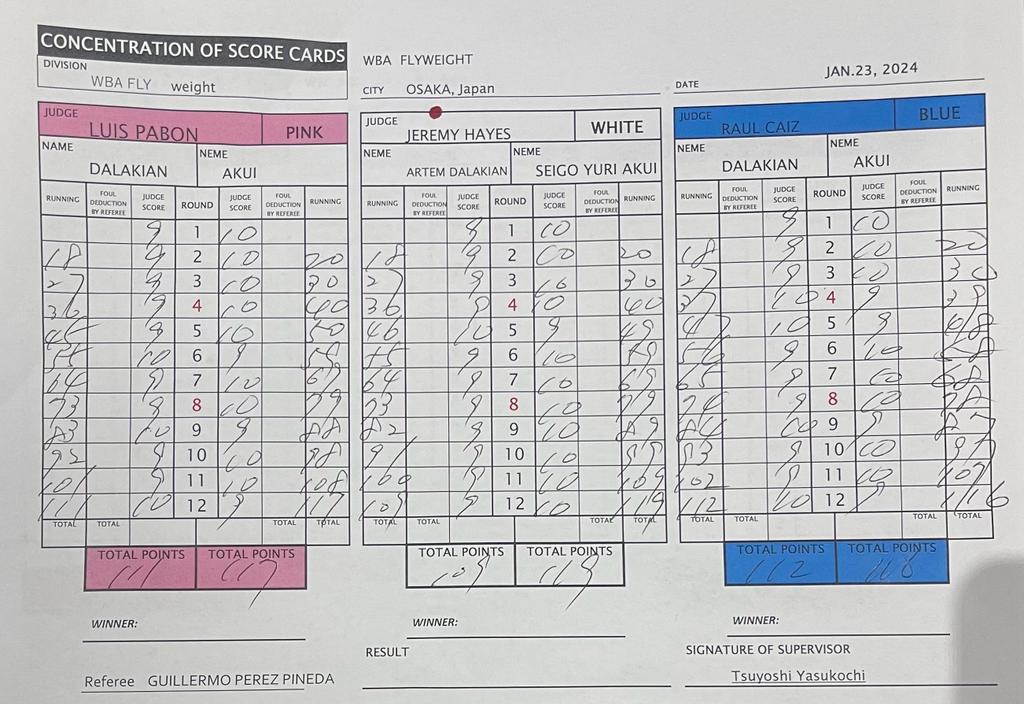 CONCENTRATION OF SCORE CARDS
DIVISION
WBA FLY weight
WBA FLYWEIGHT
CITY OSAKA, Japan
DATE JAN.23, 2024
JUDGE LUIS PABON PINK
NAME DALAKIAN NEME AKUI
RUNNING FOUL DEDUCTION BY REFEREE JUDGE SCORE ROUND JUDGE SCORE FOUL DEDUCTION BY REFEREE RUNNING
9 1 10
18 9 2 10 20
27 9 3 10 30
36 9 4 10 40
45 9 5 10 50
55 10 6 9 59
64 9 7 10 69
73 9 8 10 79
83 10 9 9 88
92 9 10 10 98
101 9 11 10 108
111 10 12 9 117
TOTAL TOTAL TOTAL TOTAL
TOTAL POINTS TOTAL POINTS
111 117
WINNER:
Referee GUILLERMO PEREZ PINEDA
JUDGE JEREMY HAYES WHITE
NEME ARTEM DALAKIAN NEME SEIGO YURI AKUI
RUNNING FOUL DEDUCTION BY REFEREE JUDGE SCORE ROUND JUDGE SCORE FOUL DEDUCTION BY REFEREE RUNNING
9 1 10
18 9 2 10 20
27 9 3 10 30
36 9 4 10 40
46 10 5 9 49
55 9 6 10 59
64 9 7 10 69
73 9 8 10 79
82 9 9 10 89
91 9 10 10 99
100 9 11 10 109
109 9 12 10 119
TOTAL TOTAL TOTAL TOTAL
TOTAL POINTS TOTAL POINTS
109 119
WINNER:
RESULT
JUDGE RAUL CAIZ BLUE
NEME DALAKIAN NEME AKUI
RUNNING FOUL DEDUCTION BY REFEREE JUDGE SCORE ROUND JUDGE SCORE FOUL DEDUCTION BY REFEREE RUNNING
9 1 10
18 9 2 10 20
27 9 3 10 30
37 10 4 9 39
47 10 5 9 48
56 9 6 10 58
65 9 7 10 68
74 9 8 10 78
84 10 9 9 87
93 9 10 10 97
102 9 11 10 107
112 10 12 9 116
TOTAL TOTAL TOTAL TOTAL
TOTAL POINTS TOTAL POINTS
112 116
WINNER:
SIGNATURE OF SUPERVISOR
Tsuyoshi Yasukochi